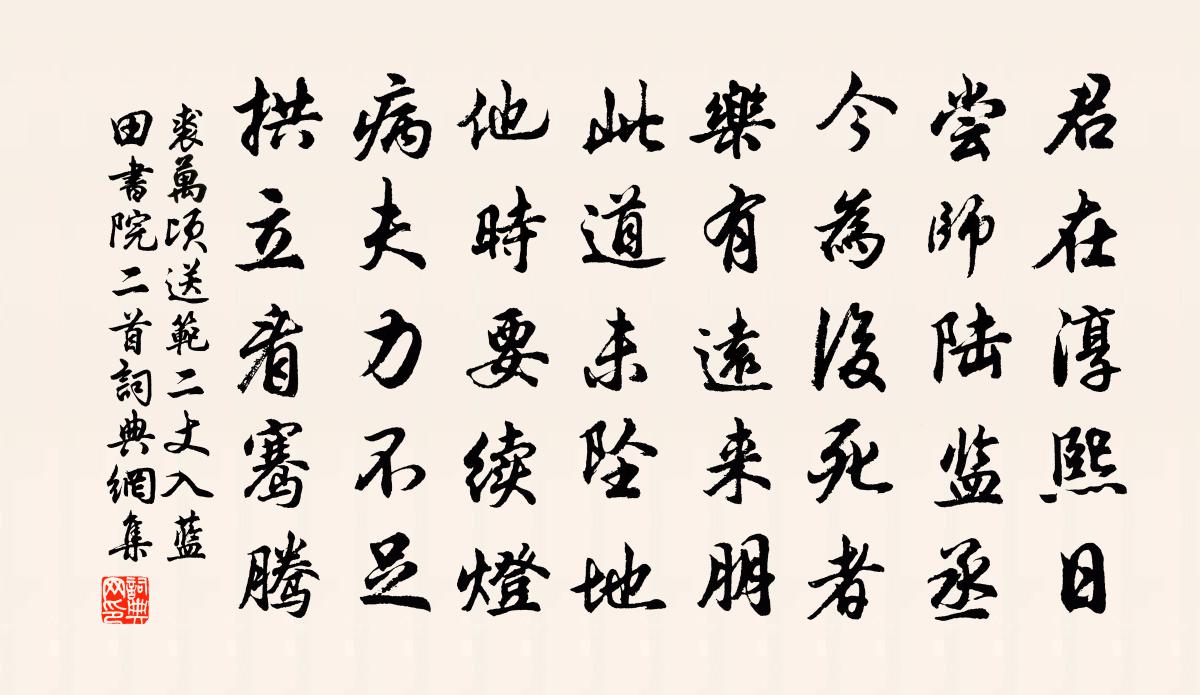 君在淳熙日
尝師陆监丞
今為後死者
樂有遠来朋
此道未坠地
他時要续燈
病夫力不足
拱立看骞腾
裘萬顷送範二丈入藍
田書院二首詞典網集
詞典网印